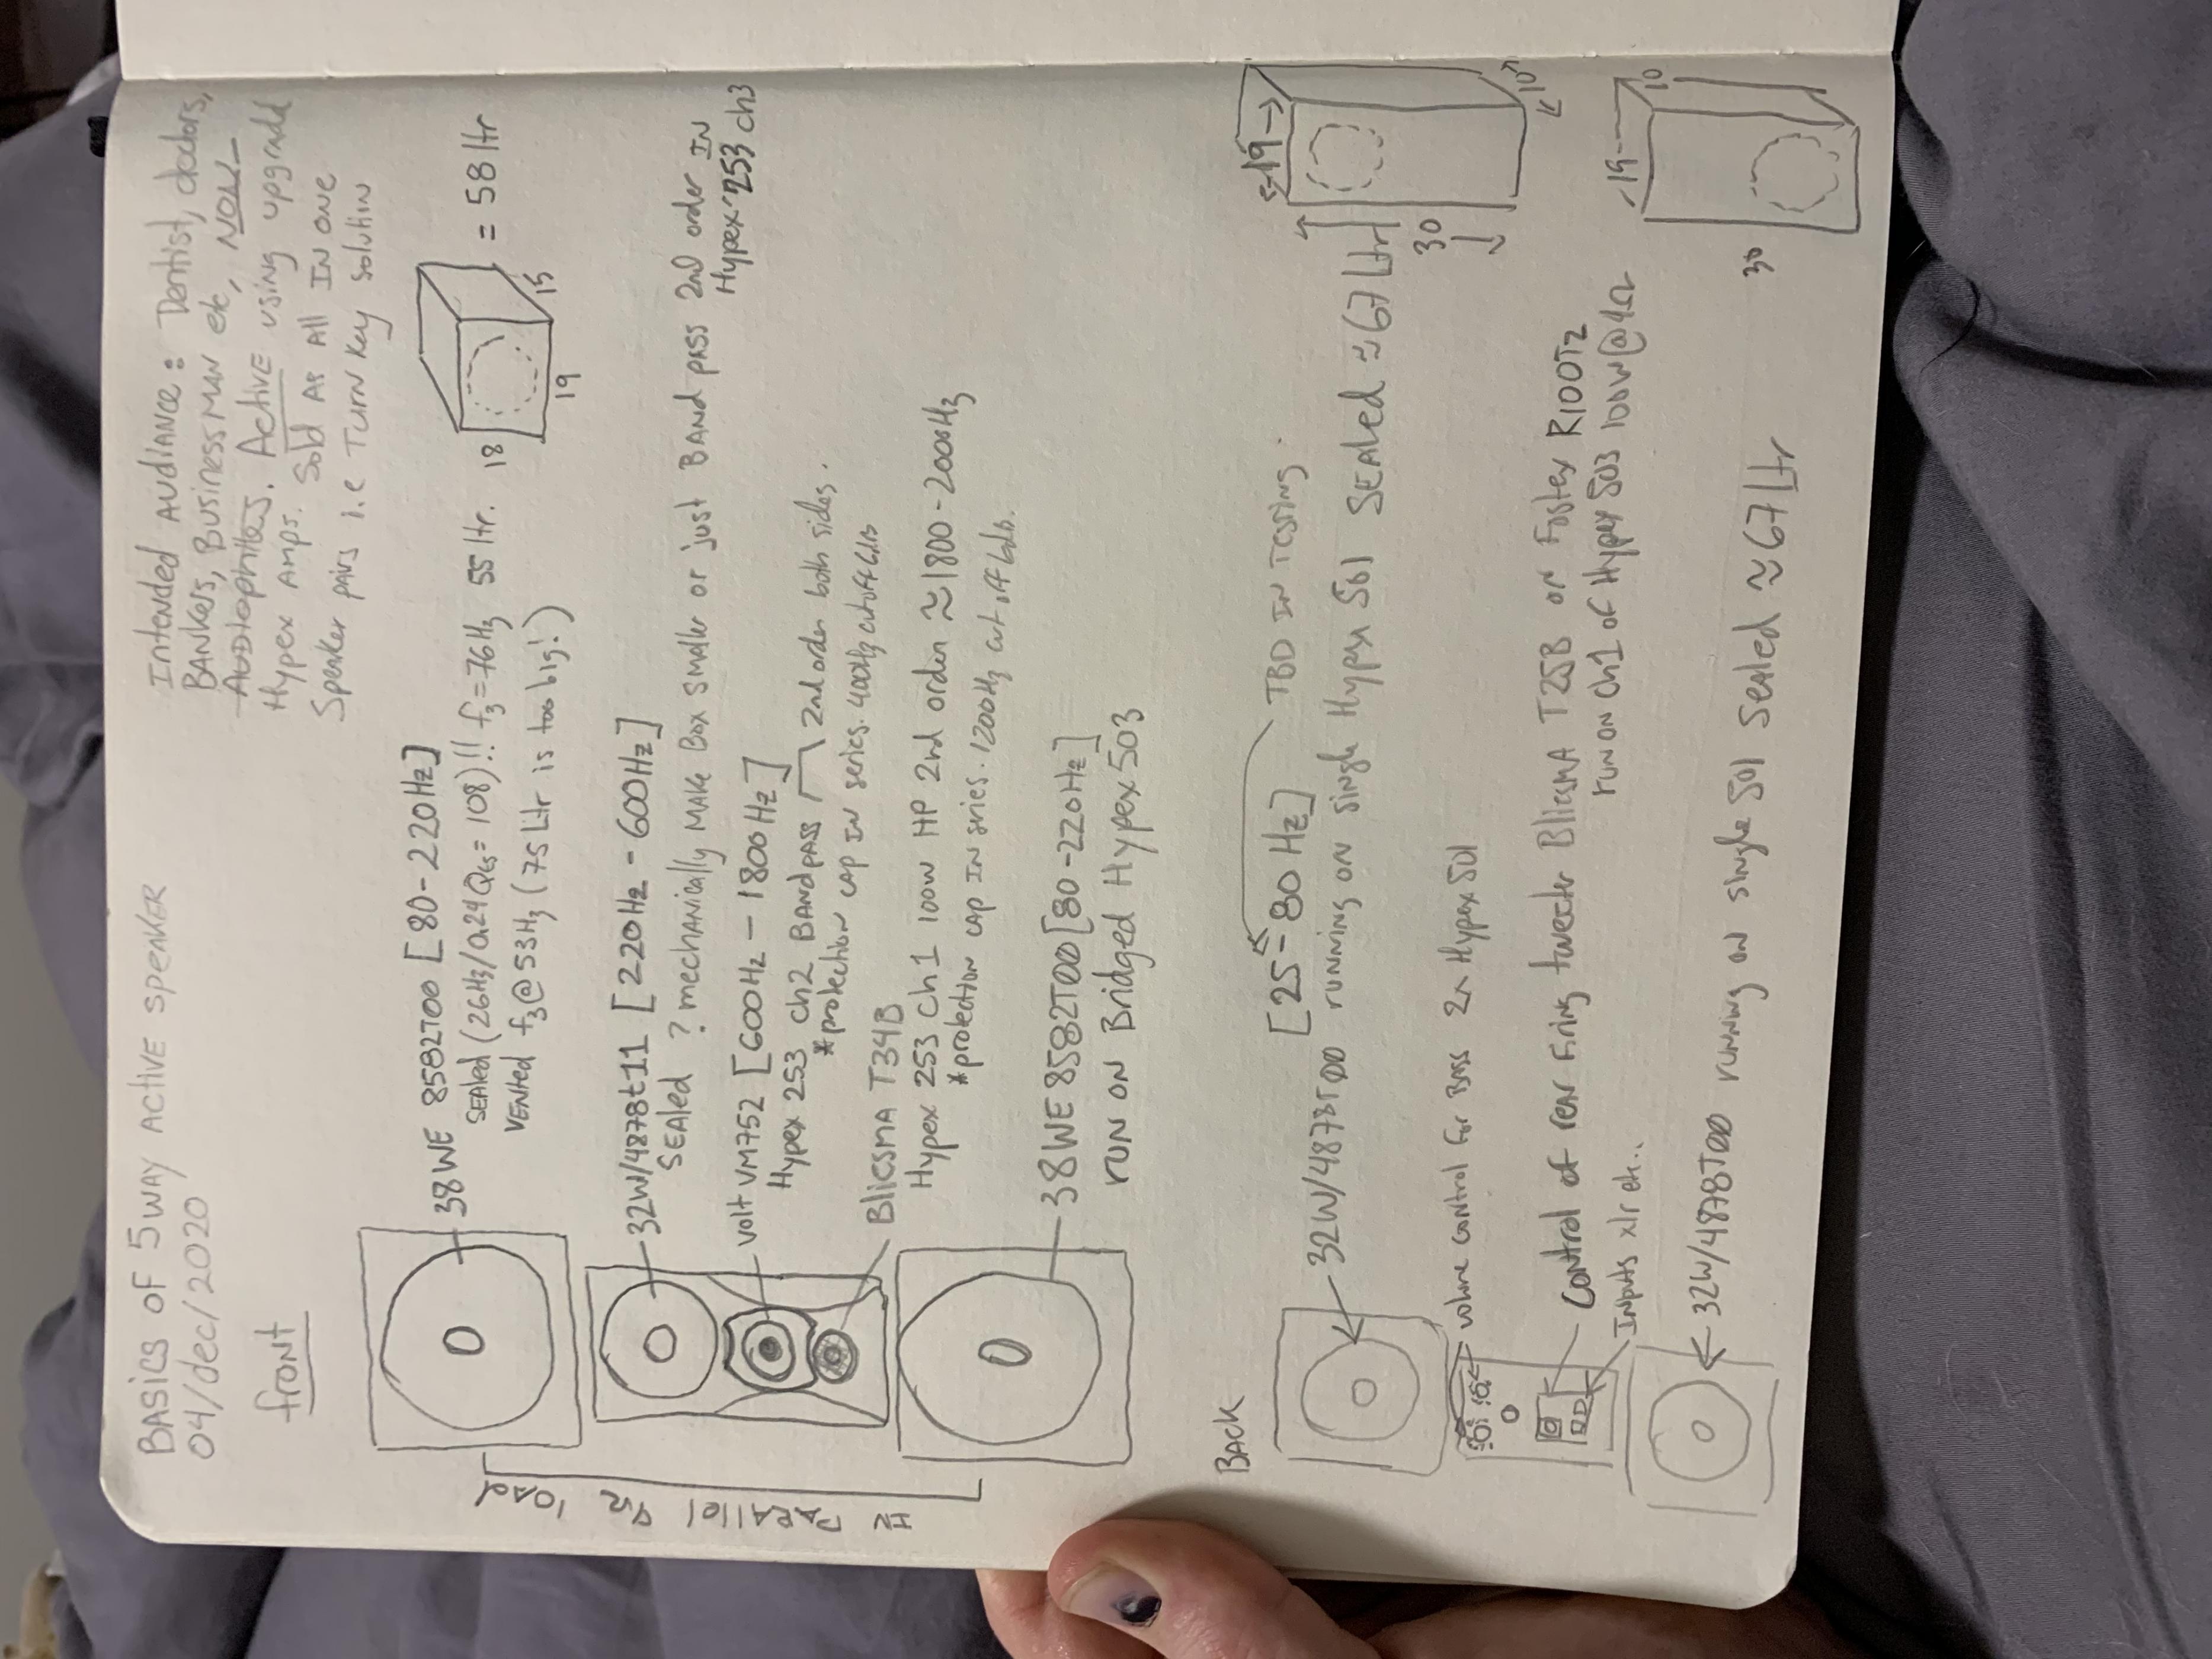 BASICS OF 5WAY ACTIVE SPEAKER
04/dec/2020
Intended Audiance: Dentist, doctors,
BANKers, Business MAN etc, NON-
AUDIophiles. Active using upgradd
Hypex Amps. Sold AS All IN ONE
Speaker pairs i.e Turn Key Solutin
front
38WE 8582T00 [80-220Hz]
SEAled (26Hz/0.24Qts = 108)!! f3=76Hz 55 ltr.
VENted f3@53Hz (75 Ltr is too big!)
18
19
15
= 58 ltr
32W/4878t11 [220Hz - 600Hz]
SEAled ? mechANically MAKE Box smaller or just BAND pASS 2nd order IN
Hypex 253 ch3
volt VM752 [600Hz - 1800Hz]
Hypex 253 ch2 BANDpASS 2nd order both sides.
*protection CAP IN series. 400Hz cutoff 6db
BlieSMA T34B
Hypex 253 ch1 100W HP 2nd order ≈1800-2000Hz
*protection CAP IN sries. 1200Hz cut off 6db.
38WE 8582T00 [80-220Hz]
run ON Bridged Hypex 503
BACK
[25-80Hz]
TBD IN Testing.
32W/4878T00 running on single Hypex 501 SEAled ≈67 Ltr
19
30
10"
volume control for BASS 2x Hypex 501
Control of rear firing tweeter BliesMA T25B or Fostex R100T2
run on ch1 of Hypex 503 100W@4Ω
Inputs xlr etc..
32W/4878T00 running on single 501 Sealed ≈67 Ltr
19
10
30